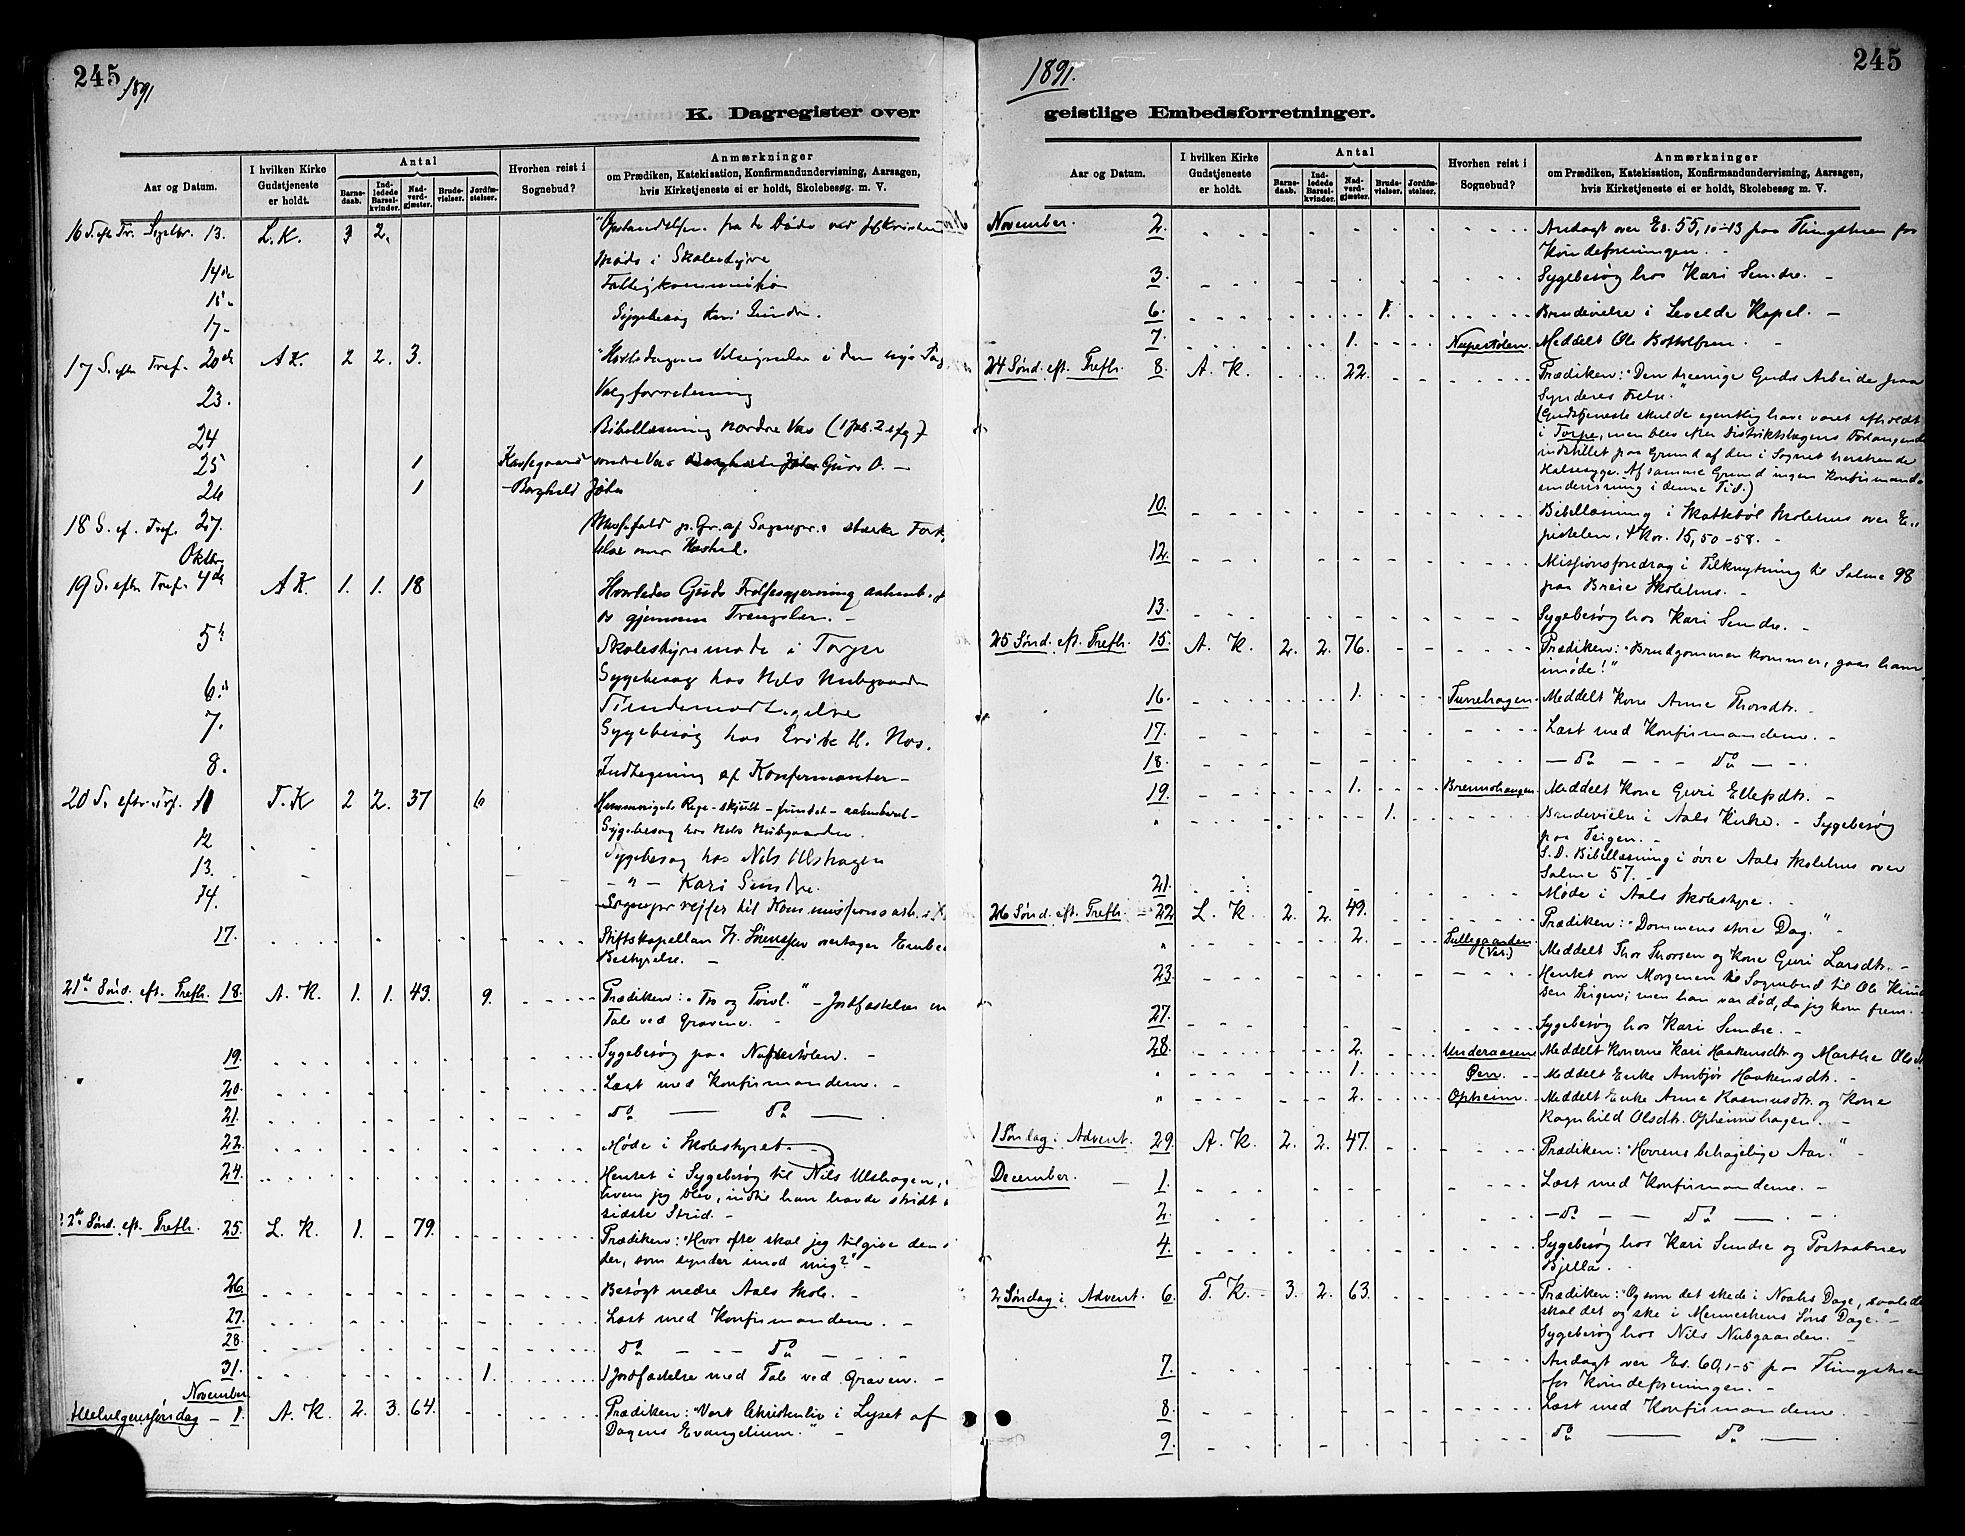 245
1891
K. Dagregister over
Aar og Datum.
I hvilken Kirke Gudstjeneste er holdt.
Antal
Barne-daab.
Ind-ledede Barsel-kvinder.
Nad-verd-gjæster.
Brude-vielser.
Jordfæ-stelser.
Hvorhen reist i Sognebud?
Anmærkninger
om Prædiken, Katekisation, Konfirmandundervisning, Aarsagen,
hvis Kirketjeneste ei er holdt, Skolebesøg m. V.
16 S. eft Tr. Septbr. 13. L. K. 3 2. "Opstandelsen fra de Døde
14de Møde i Skolestyre
15. Fattigkommission
17- Sygebesøg Kari Sundre.
17 S. eftr Tref. 20de A K. 2 2. 3.
23. Valgforretning
24 Bibellæsning nordre Vas
25 1 søndre Vas Guro O. -
26 1
18 S. ef. Tref. 27. Messefald p. Gr. af Sognepr.s stærke
Oktbr.
19 S. efter Tref. 4de A K. 1. 1. 18 Hvorledes Guds Frelsesgjerning
os gjennem Trængsler. -
5te Skolestyremøde i Torpe
Sygebesøg hos Nils Nubgaarden
6.
7. Sygebesøg hos H. Noss.
8. Indtegning af Konfirmanter -
20 S. eftr. Tref. 11 T. K 2 2. 37 6 Himmeriges Rige - skjult - fundet - aabenbaret -
12 Sygebesøg hos Nils Nubgaarden.
13. Sygebesøg hos Nils Ulshagen
14. - " - Kari Sundre.
Sognepr rejser til Kommissionsarb.
17. Stiftskapellan overtager Embe
Bestyrelse. -
21de Sønd. eft. Trefh. 18. A. K. 1. 1. 43. 9. Prædiken: "Tro og Tvivl." - Jordfæstelse m
Tale ved Gravene. -
19. Sygebesøg paa Nupestølen. -
20. Læst med Konfirmanderne. -
21. Do — Do —
22. Møde i Skolestyret.
24. Hentet i Sygebesøg til Nils Ulshagen,
hvem jeg blev, indtil han havde stridt
sidste Strid. -
22de Sønd. eft. Trefh. 25. L. K. 1. - 79. Prædiken: "Hvor ofte skal jeg tilgive den
der, som synder imod mig?" -
26. Besøgt nedre Aals Skole. -
27. Læst med Konfirmanderne. -
28. Do - - - Do -
31. 1. 1 Jordfæstelse med Tale ved Graven. -
November
Allehelgenssøndag - 1. A. K. 2. 3. 64. Prædiken: "Vort Christenliv i Lyset af
Dagens Evangelium." -
1891.
245
geistlige Embedsforretninger.
Aar og Datum.
I hvilken Kirke Gudstjeneste er holdt.
Antal
Barne-daab.
Ind-ledede Barsel-kvinder.
Nad-verd-gjæster.
Brude-vielser.
Jordfæ-stelser.
Hvorhen reist i Sognebud?
Anmærkninger
om Prædiken, Katekisation, Konfirmandundervisning, Aarsagen,
hvis Kirketjeneste ei er holdt, Skolebesøg m. V.
November. 2. Andagt over Es. 55, 10-13 paa Thingstuen for
Kvindeforeningen. -
3. Sygebesøg hos Kari Sundre. -
6. 1. Brudevielse i Leveld Kapel. -
7. 1. Nupestølen. Meddelt Ole Bottolfsen. -
24 Sønd. eft. Trefh. 8. A. K. 22. Prædiken: "Den treenige Guds Arbeide paa
Synderes Frelse."
(Gudstjeneste skulde egentlig have været afholdt
i Torpe, men blev efter Distriktslægens Forlangende
indstillet paa Grund af den i Sognet herskende
Halssyge. Af samme Grund ingen Konfirmand-
undervisning i denne Tid.)
10. Bibellæsning i Skattebøl Skolehus over E-
pistelen, 1 Kor. 15, 50-58. -
12. Missionsforedrag i Tilknytning til Salme 98
paa Breie Skolehus. -
13. Sygebesøg hos Kari Sundre. -
25 Sønd. eft. Trefh. 15. A. K. 2. 2. 76. Prædiken: "Brudgommen kommer, gaar ham
imøde!"
16. 1. Turrehagen. Meddelt Kone Anne Thorsdtr. -
17. Læst med Konfirmanderne. -
18. - Do - - - Do - -
19. 1. Brennohaugen Meddelt Kone Guri Ellefsdtr. -
" 1. Brudevielse i Aals Kirke. - Sygebesøg
paa Teigen. -
S. D. Bibellæsning i øvre Aals Skolehus over
Salme 57. -
21. Møde i Aals Skolestyre. -
26 Sønd. eft. Trefh. - 22 L. K. 2. 2. 49. Prædiken: "Dommens store Dag." -
" 2. Sullegaarden (Vas.) Meddelt Thor Thorsen og Kone Guri Larsdtr. -
23. Hentet om Morgenen til Sognebud til Ole Knud
sen Teigen; men han var død, da jeg kom frem. -
27. Sygebesøg hos Kari Sundre. -
28. 2. Underaasen Meddelt Konerne Kari Haakensdtr. og Marthe Olsdt
" 1. Øen. Meddelt Enke Ambjør Haakensdtr. -
" 2. Opheim. Meddelt Enke Anne Rasmusdtr. og Kone
Ragnhild Olsdtr. Opheimshagen. -
1 Søndag i Advent. 29. A. K. 2. 2. 47. Prædiken: "Herrens behagelige Aar." -
December. - 1. Læst med Konfirmanderne. -
2. - Do - - Do -
4. Sygebesøg hos Kari Sundre og Postaabner
Bjella. -
2 Søndag i Advent. 6. T. K. 3. 2. 63. Prædiken: "Og som det skede i Noahs Dage, saaledes
skal det og ske i Menneskens Søns Dage." -
Sygebesøg hos Nils Nubgaarden. -
7. Andagt over Es. 60, 1-5 paa Thingstuen
for Kvindeforeningen. -
8. Læst med Konfirmanderne. -
9. Do — Do —